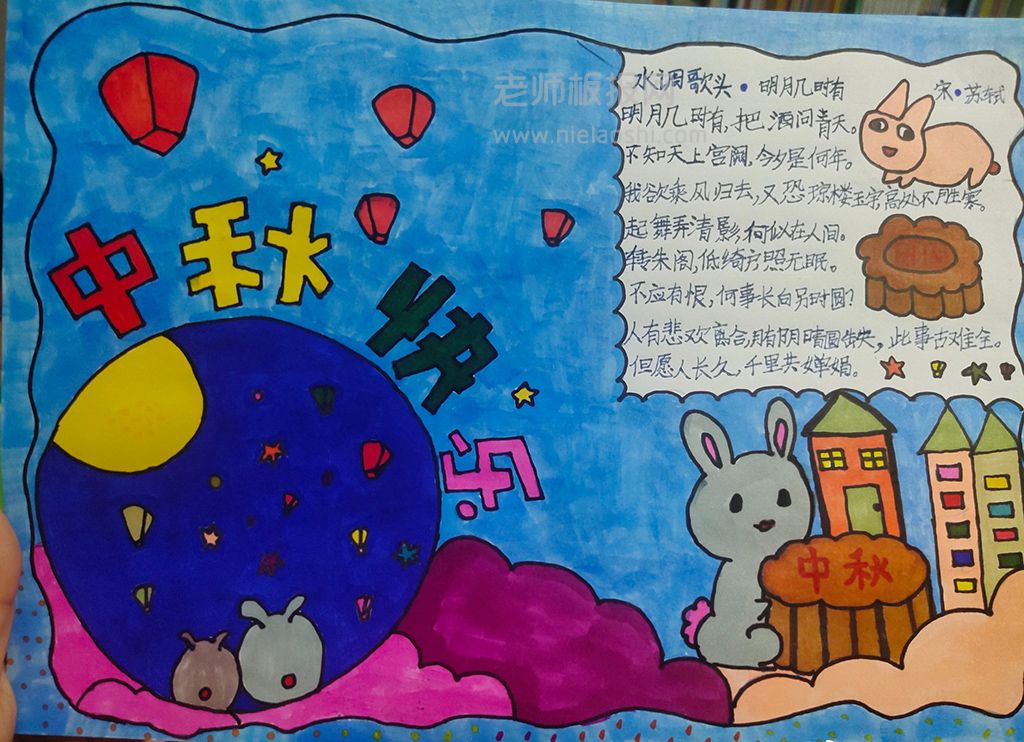 中秋快乐
水调歌头·明月几时有
宋·苏轼
明月几时有,把酒问青天。
不知天上宫阙,今夕是何年。
我欲乘风归去,又恐琼楼玉宇,高处不胜寒。
起舞弄清影,何似在人间。
转朱阁,低绮户,照无眠。
不应有恨,何事长向别时圆?
人有悲欢离合,月有阴晴圆缺,此事古难全。
但愿人长久,千里共婵娟。
中秋
www.nielaoshi.com